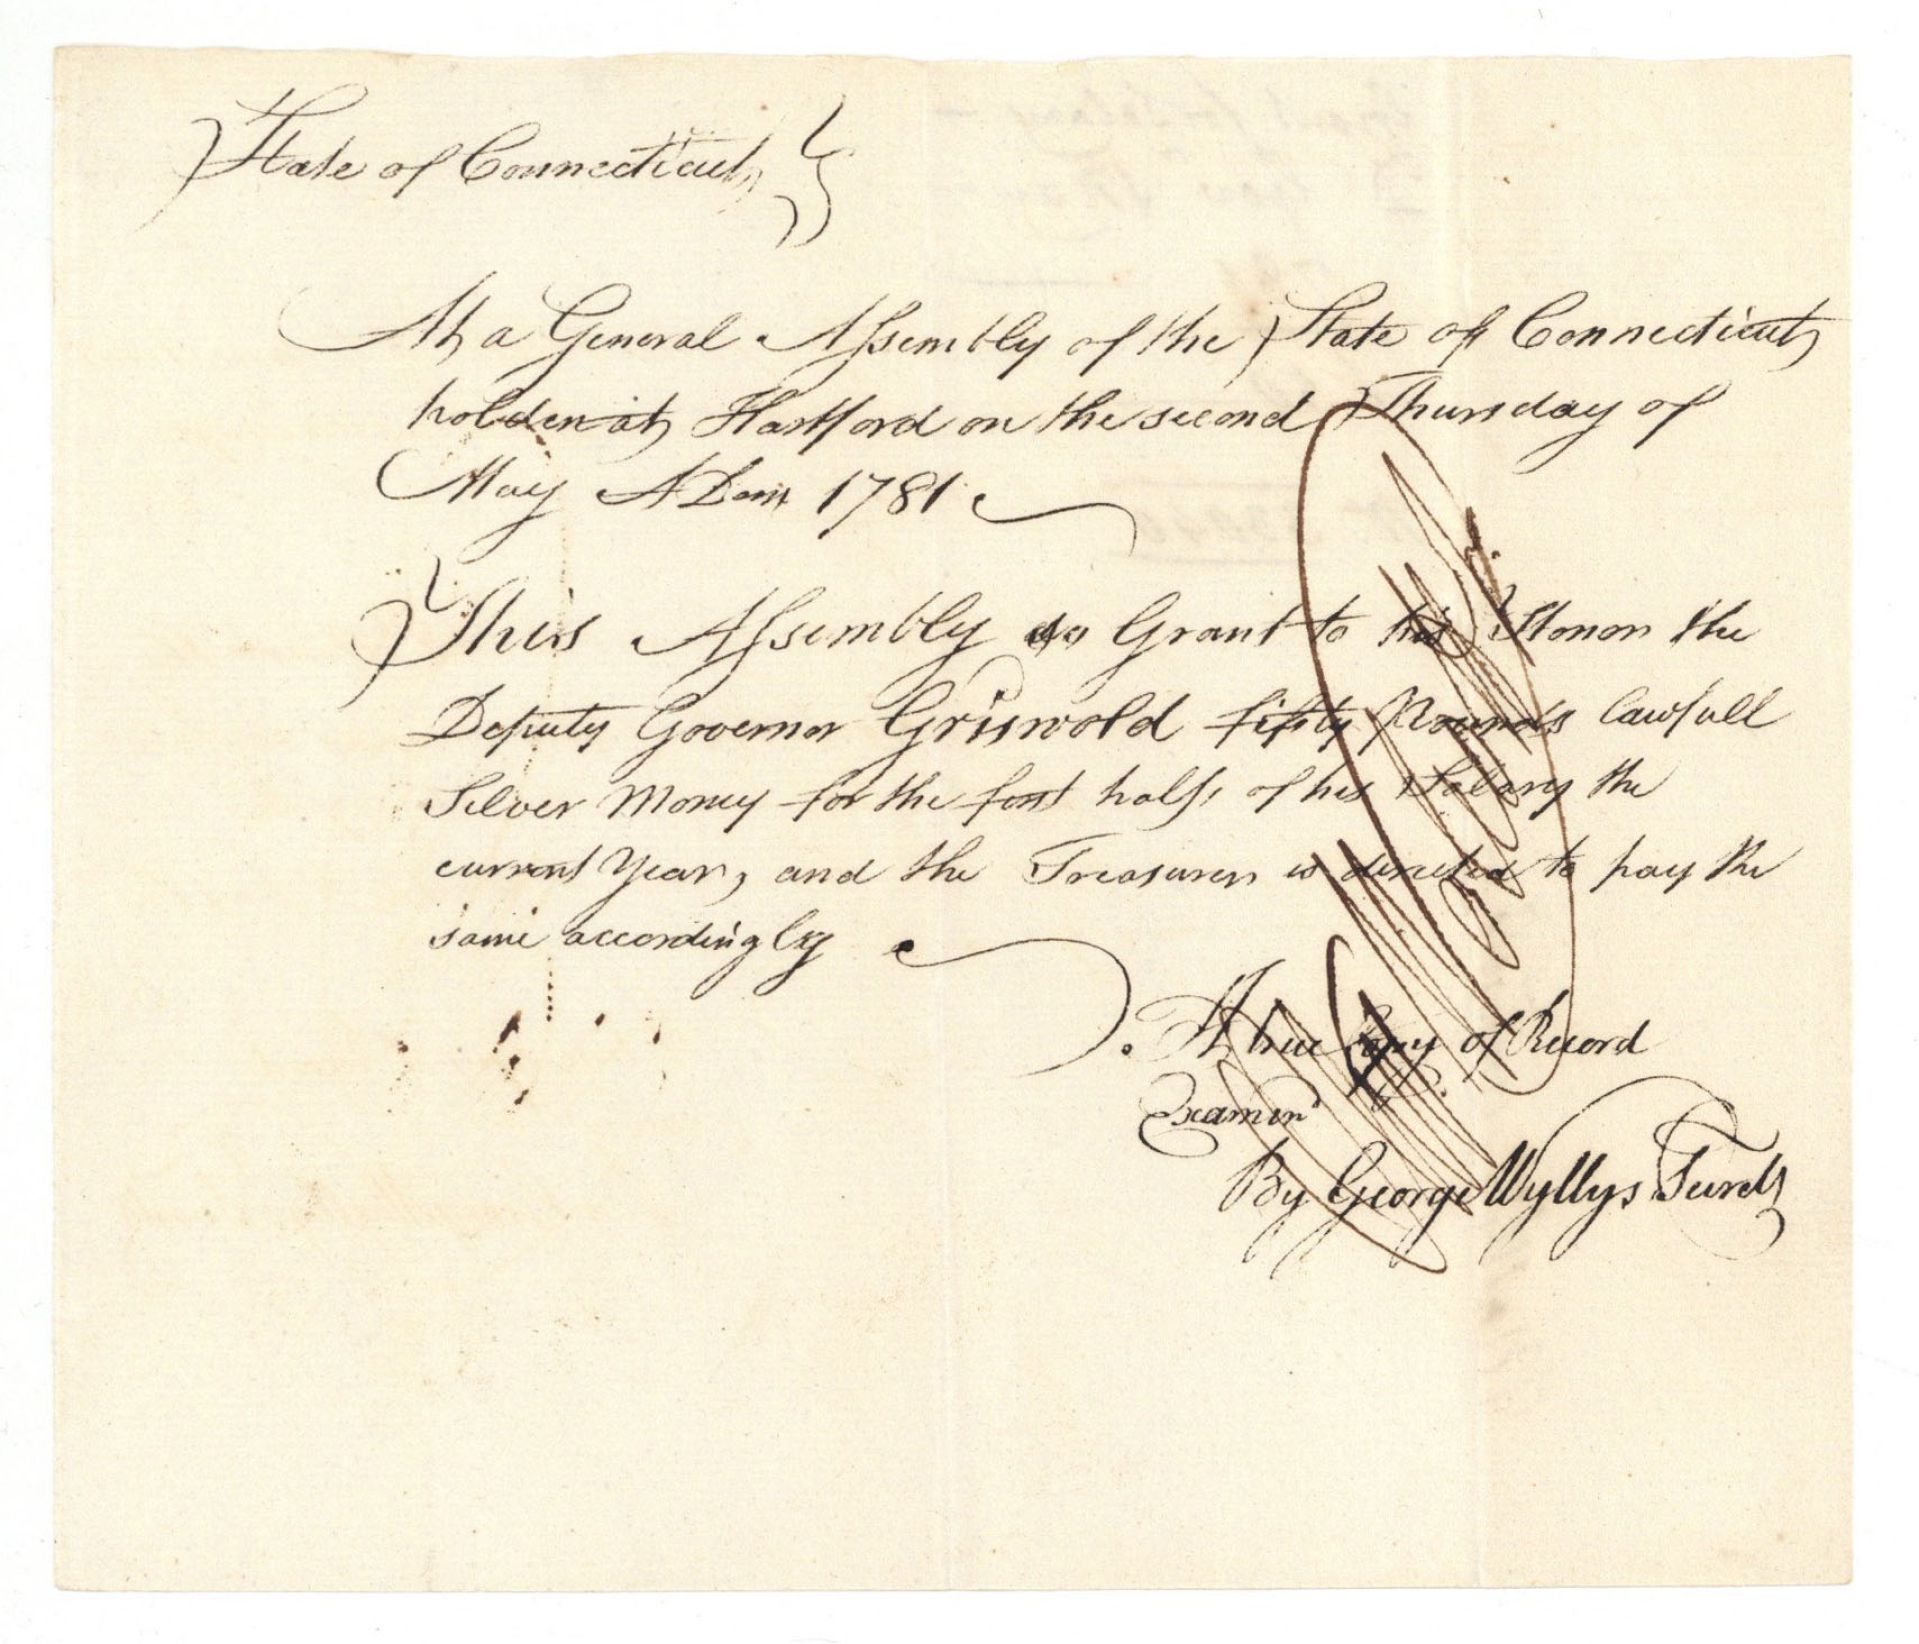 State of Connecticut
At a General Assembly of the State of Connecticut
holden at Hartford on the second Thursday of
May A Dom 1781
This Assembly do Grant to his Honor the
Deputy Governor Griswold fifty Pounds lawfull
Silver Money for the first half of his Salary the
current Year, and the Treasurer is directed to pay the
same accordingly
A true Copy of Record
Examind
By George Wyllys Secret